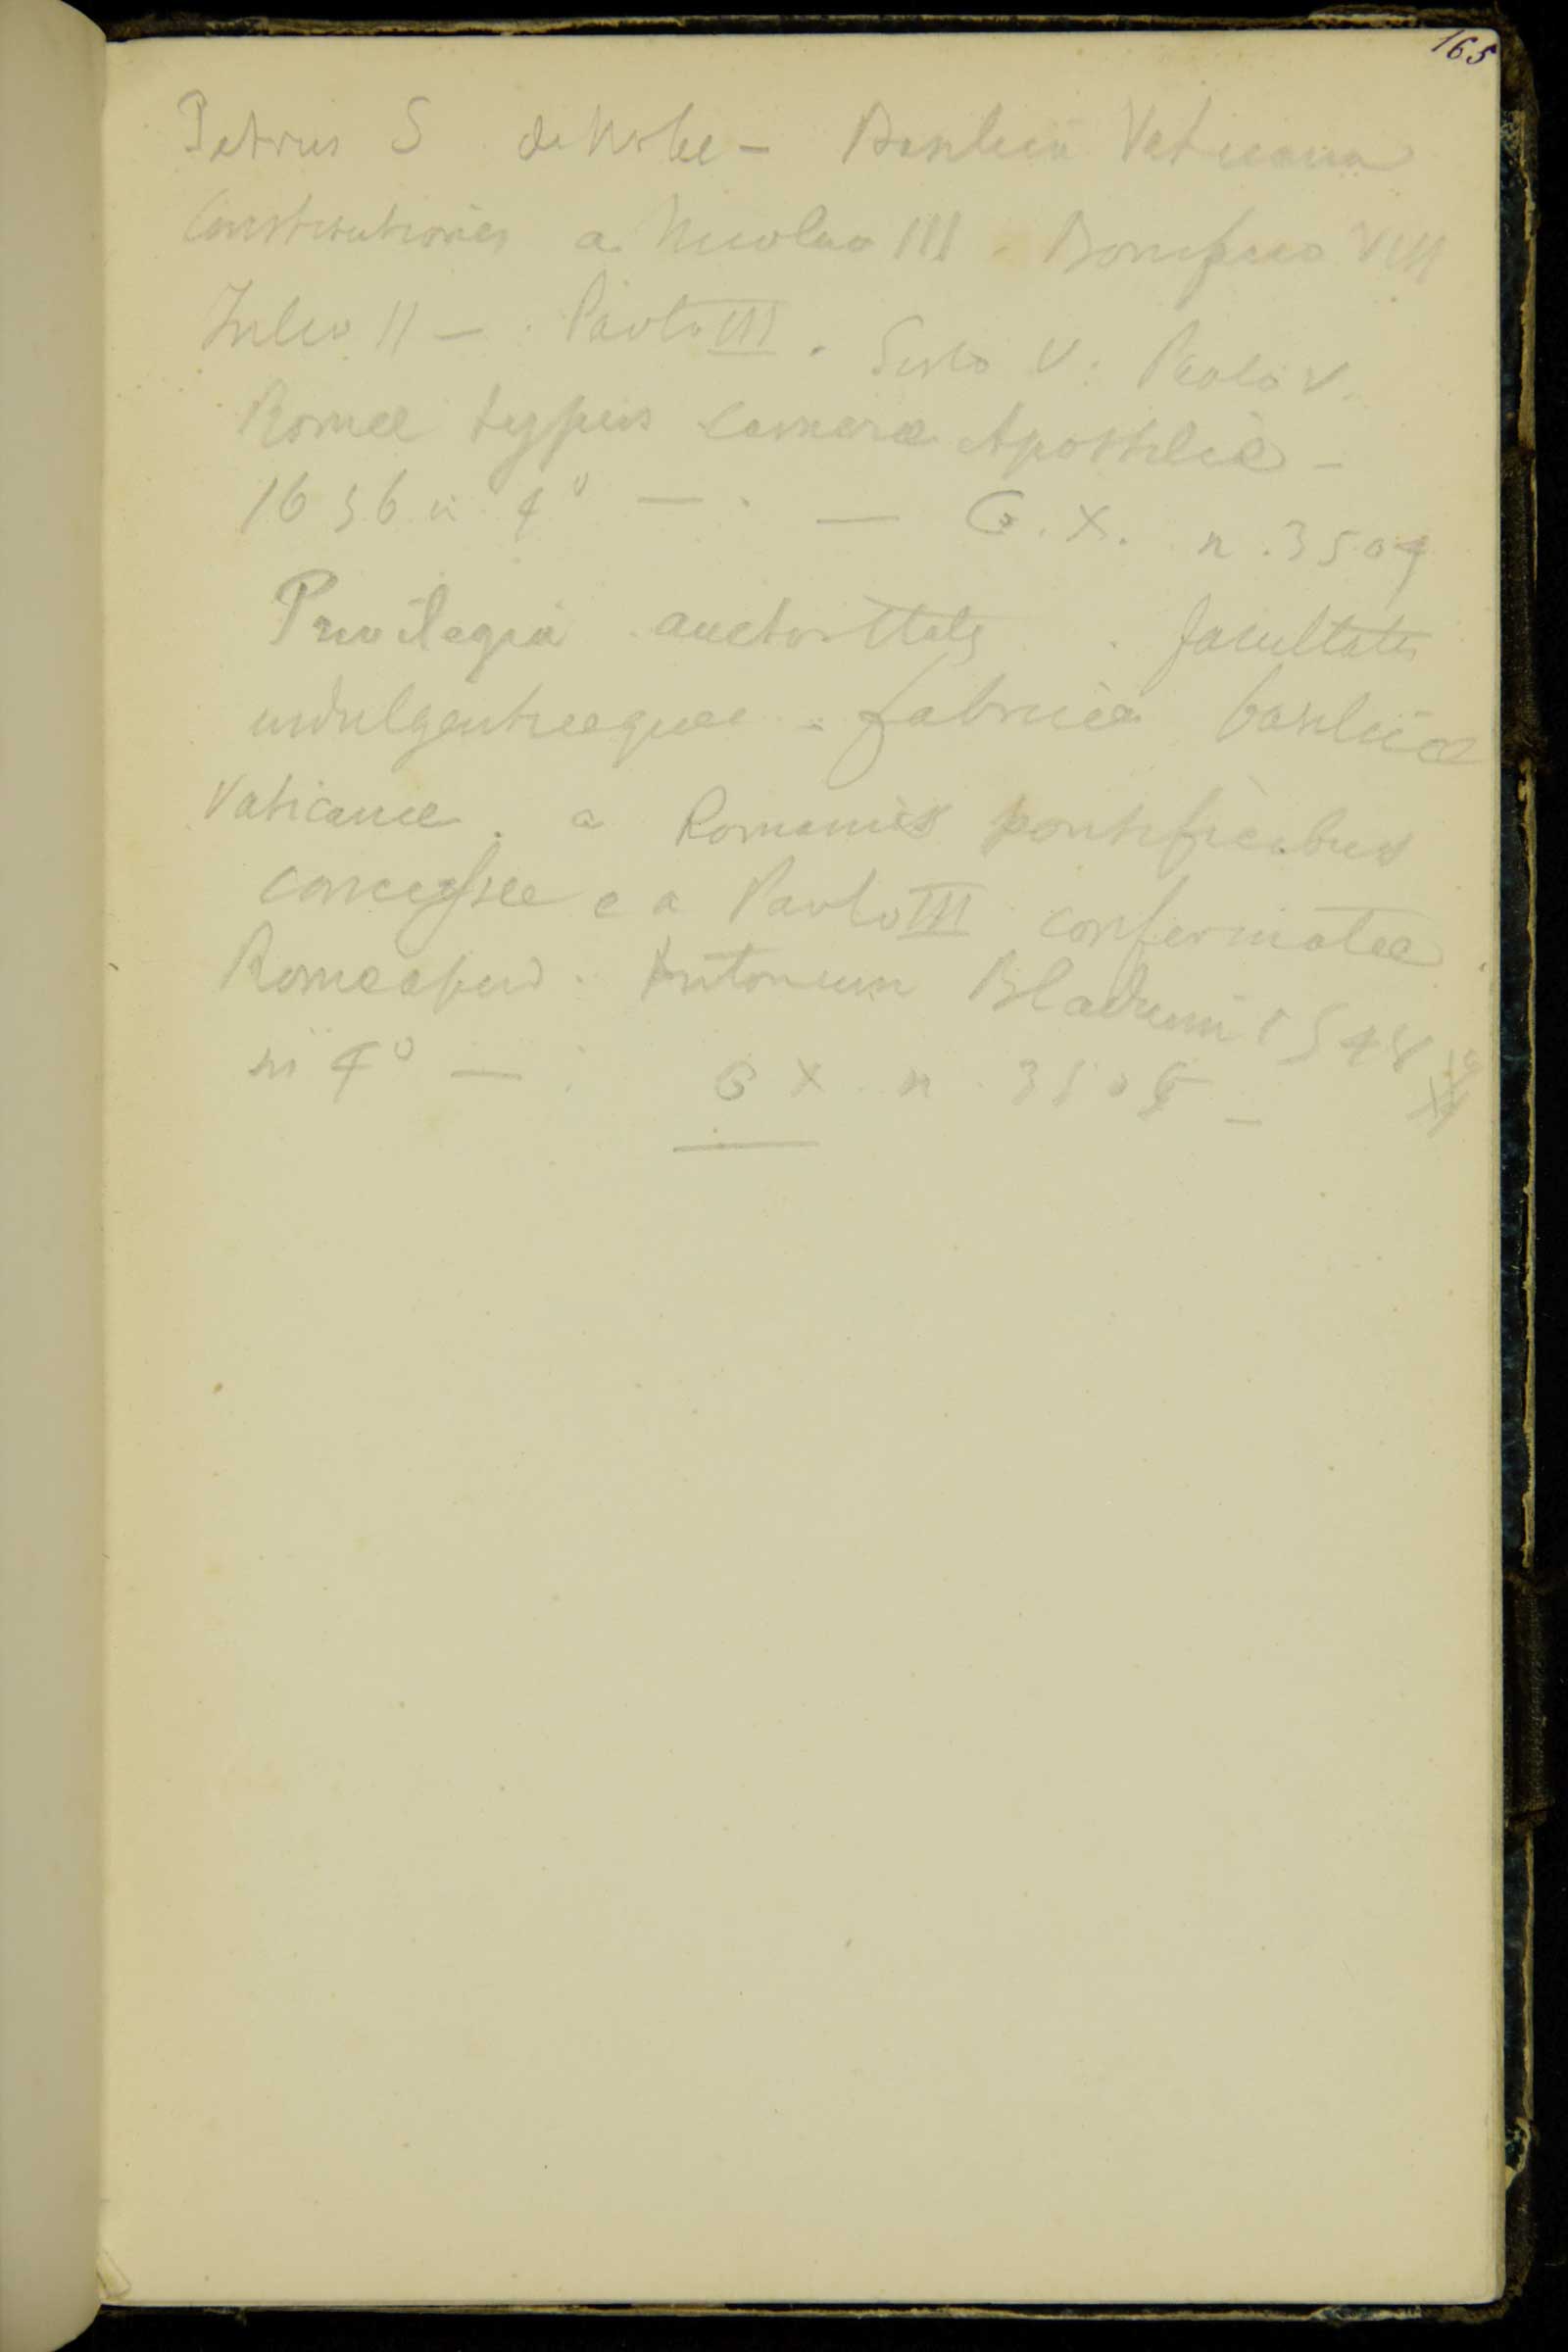 165
Petrus S de Urbe - Basilica Vaticana
Constitutiones a Nicolao III. Bonifacio VIII
Julio II - . Paolo III . Sisto V. Paolo V.
Romae typis Camerae Apostolicae -
1636 in 4° - . - G. X. n. 3504
Privilegia auctoritates . facultates
indulgentiaeque - fabricae basilicae
Vaticanae . a Romanis pontificibus
concessae e a Paolo III confermatae .
Romae apud . Antonium Bladum 1548
in 4° - . G X n . 3505 -